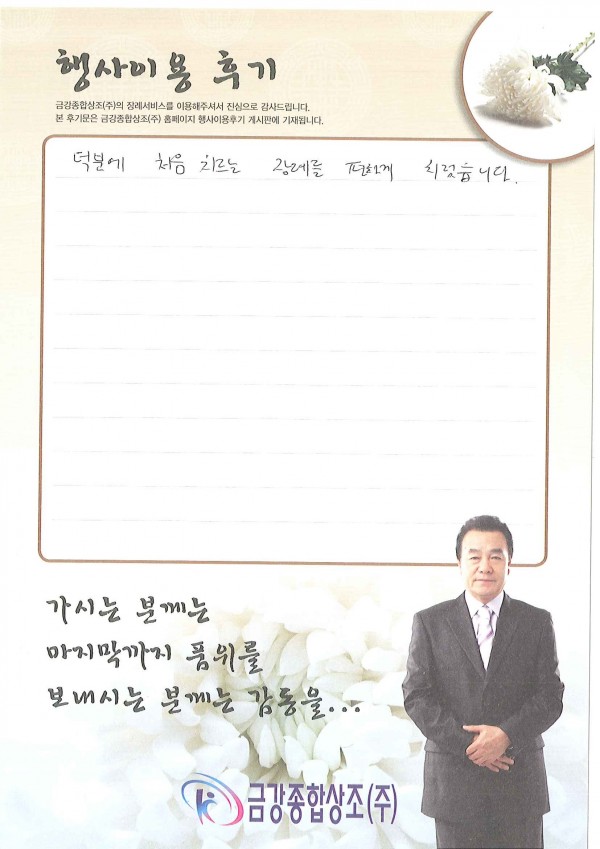 행사이용 후기
금강종합상조(주)의 장례서비스를 이용해주셔서 진심으로 감사드립니다.
본 후기문은 금강종합상조(주) 홈페이지 행사이용후기 게시판에 기재됩니다.
덕분에 처음 치르는 장례를 편하게 치렀습니다.
가시는 분께는
마지막까지 품위를
보내시는 분께는 감동을...
금강종합상조(주)